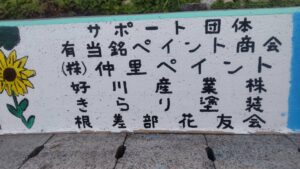 サポート団体
有当銘ペイント商会
(株)仲里ペイント
好川産業株
きらり塗装
根差部花友会